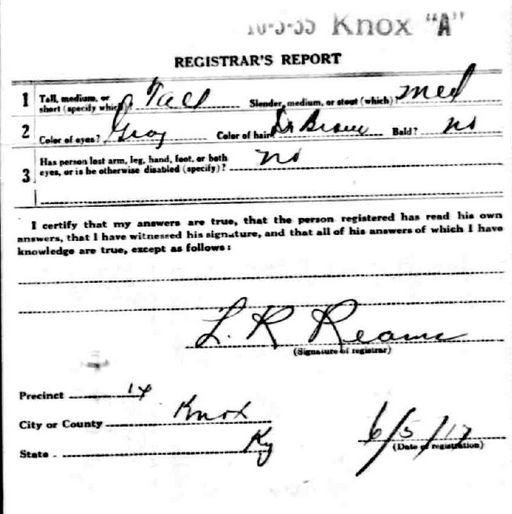 Knox "A"
REGISTRAR'S REPORT
1 Tall, medium, or short (specify which)? Tall Slender, medium, or stout (which)? med
2 Color of eyes? Gray Color of hair Dr Brown Bald? no
3 Has person lost arm, leg, hand, foot, or both eyes, or is he otherwise disabled (specify)? no
I certify that my answers are true, that the person registered has read his own
answers, that I have witnessed his signature, and that all of his answers of which I have
knowledge are true, except as follows:
L. R
(Signature of registrar)
Precinct 14
City or County Knox
State Ky
6/5/17
(Date of registration)